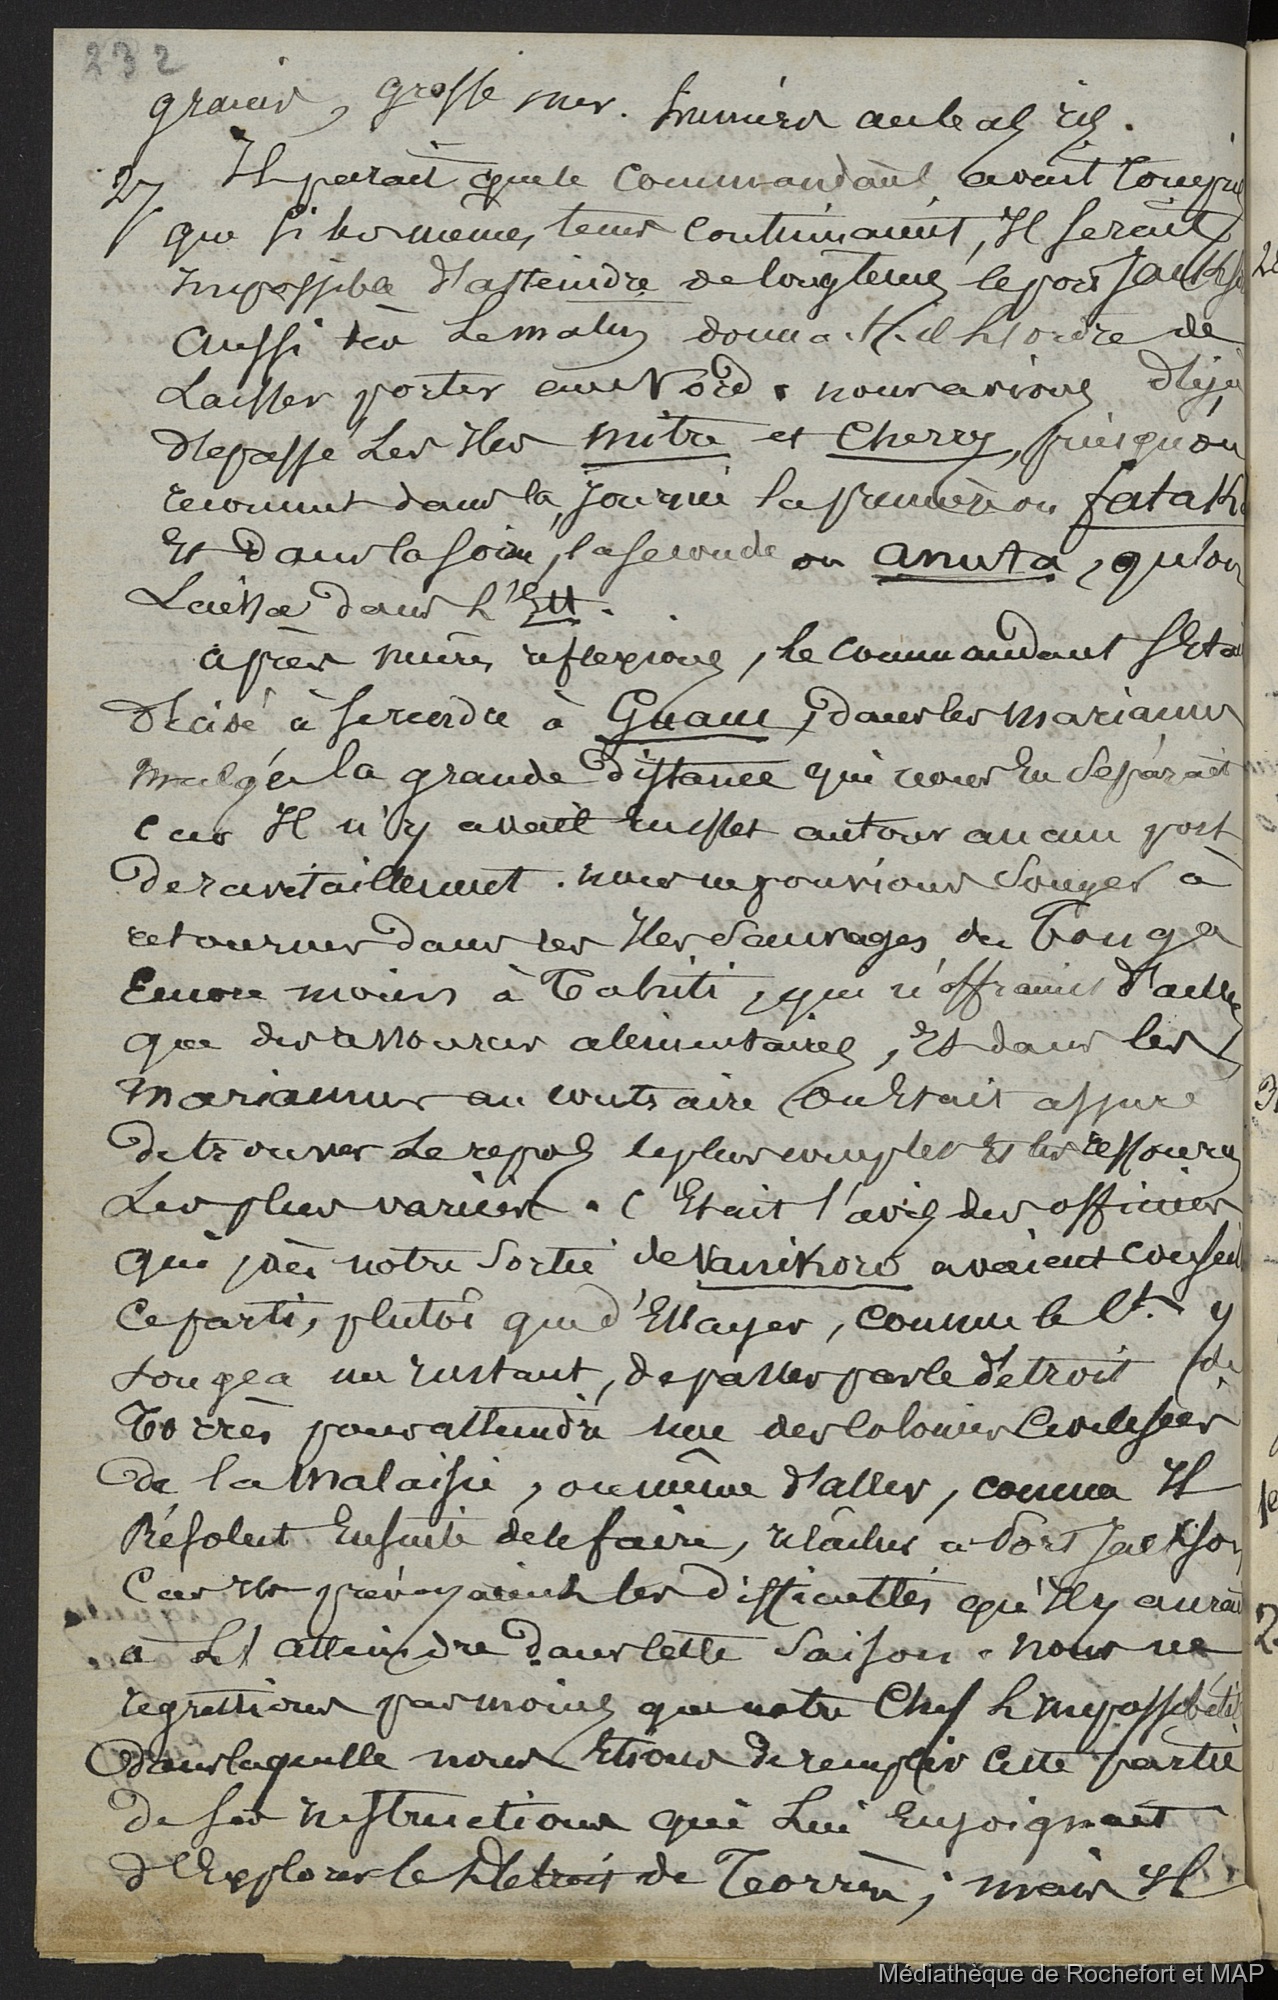 232
grains, grosse mer.
27 Il parait que le commandant avait compris
que si les mêmes tems continuaient, Il serait
Impossible d'atteindre de longtems le port Jackson
Aussi le matin donna-t-il l'ordre de
Laisser porter au Nord. nous avions déjà
dépassé Les Iles Mitre et Cherry, puisqu'on
reconnut dans la Journée la première ou fataka
Et dans la soirée, la seconde ou anuta, qu'on
Laissa dans L'Est.
après mûres réflexions, le commandant s'Etait
décidé à se rendre à Guam, dans les mariannes
malgré la grande distance qui nous En séparait
car Il n'y avait autour aucun port
de ravitaillement. nous ne pouvions Songer à
retourner dans les Iles Sauvages de Tonga
Encore moins à Tahiti, qui n'offraient d'ailleurs
que des ressources alimentaires, Et dans les
Mariannes au contraire on Etait assuré
de trouver Le repos le plus complet Et les ressources
Les plus variées. C'Etait l'avis des officiers
qui dès notre Sortie de Vanikoro avaient conseillé
ce parti, plutôt que d'Essayer, comme le Ct. y
Songea un Instant, de passer par le détroit de
Torrès pour atteindre une des Colonies Civilisées
de la Malaisie, ou même d'aller, comme Il
Résolut Ensuite de le faire, relâcher à Port Jackson
Car Ils prévoyaient les difficultés qu'Il y aurait
à L'atteindre dans cette Saison. Nous ne
regrettions pas moins que notre Chef L'Impossibilité
dans laquelle nous Etions de remplir cette partie
de ses Instructions qui Lui Enjoignait
d'Explorer le Détroit de Torrès; mais Il
Médiathèque de Rochefort et MAP